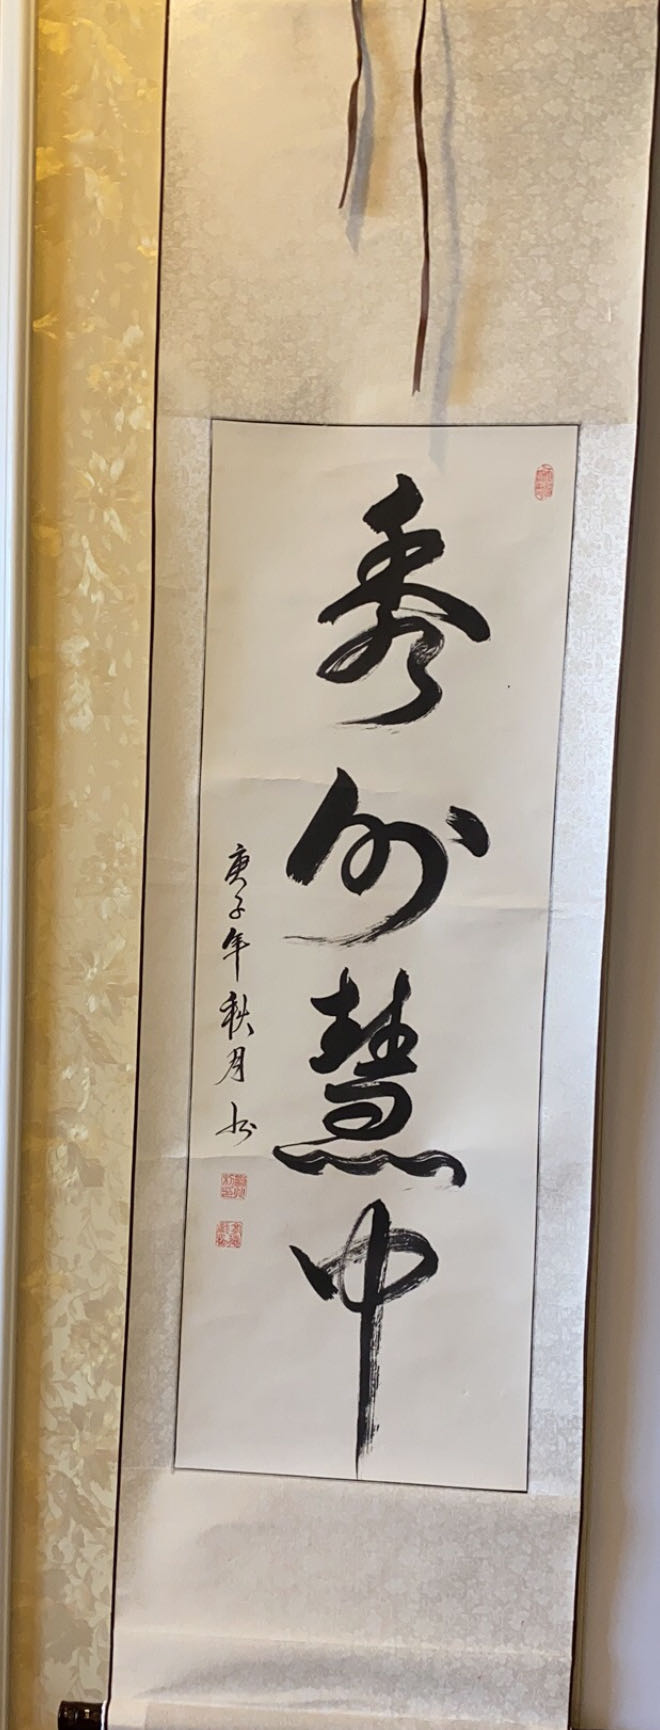 秀外慧中
庚子年秋月